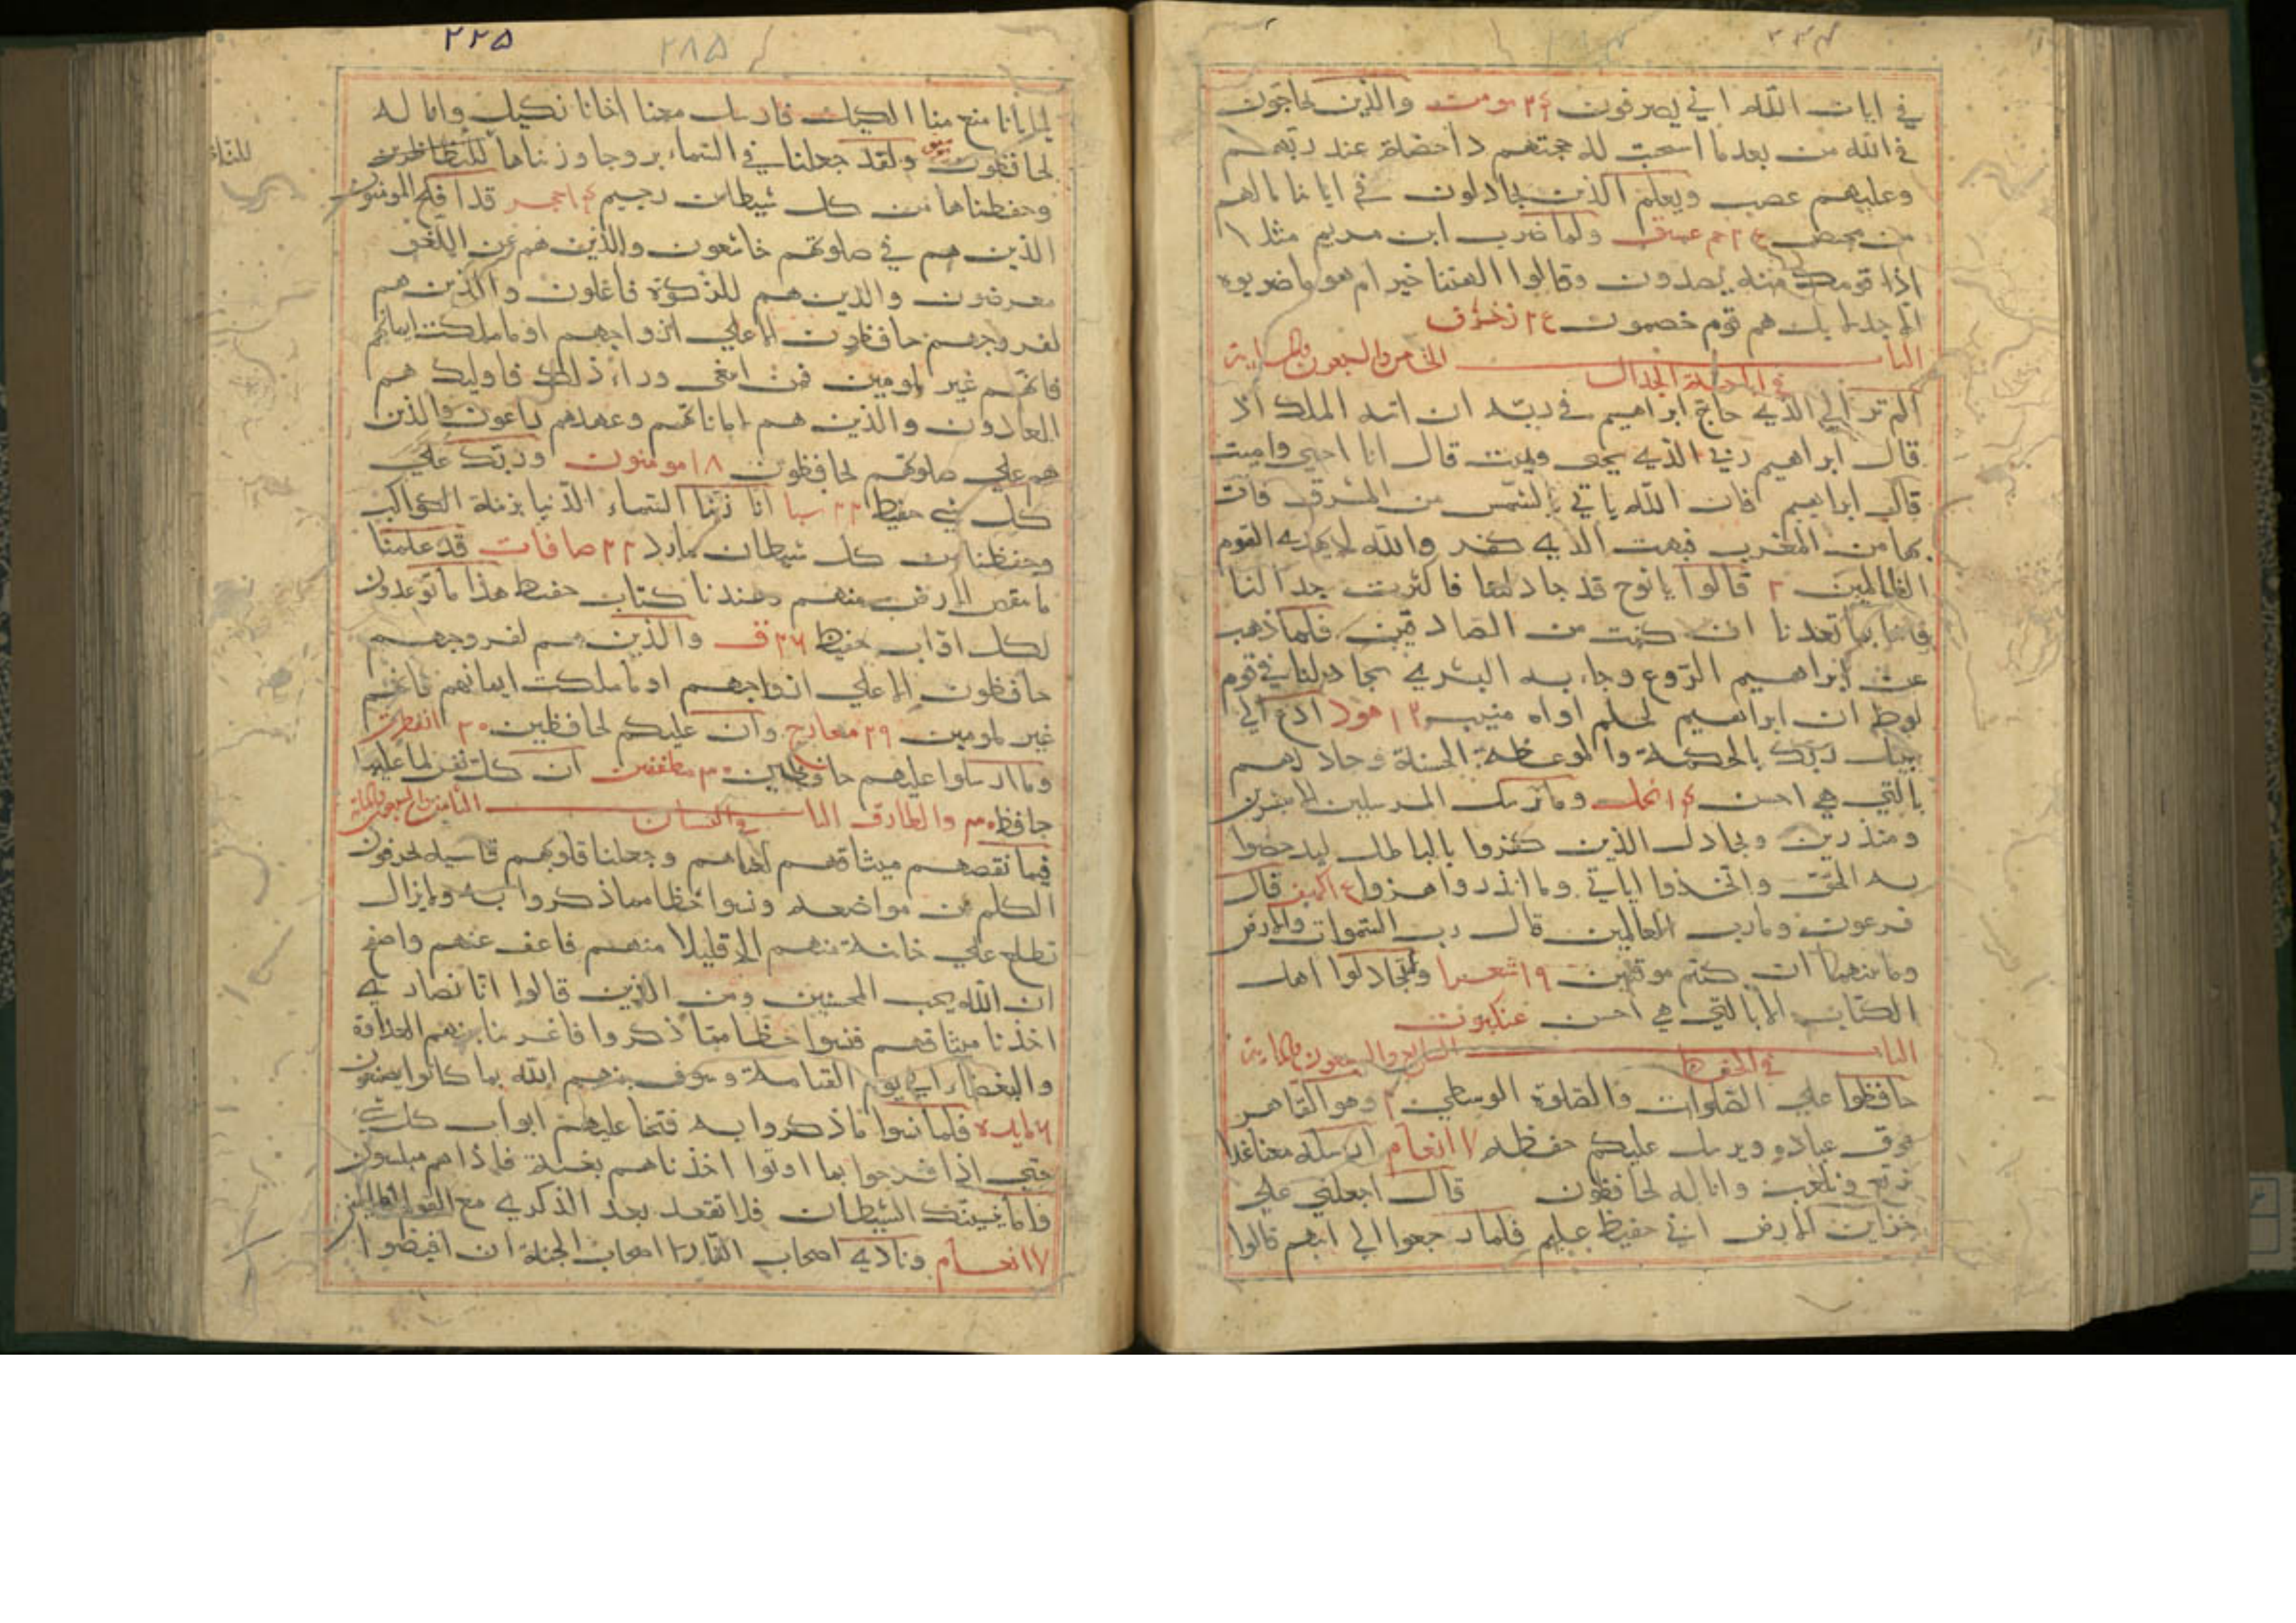 في ايات الله اني يصرفون ٢٤ مومن والذين يحاجون
في الله من بعد ما استجب له حجتهم داحضة عند ربهم
وعليهم غضب ويعلم الذين يجادلون في اياتنا مالهم
من محيص ٤٢ حم عسق ولما ضرب ابن مريم مثلا
اذا قومك منه يصدون وقالوا االهتنا خير ام هو ما ضربوه
الا جدلا بل هم قوم خصمون ٤٢ زخرف
الباب الخامس والسبعون والماية
في الجدال
الم تر الي الذي حاج ابراهيم في ربه ان اته الملك اذ
قال ابراهيم ربي الذي يحى ويميت قال انا احيي واميت
قال ابراهيم فان الله ياتي بالشمس من المشرق فات
بها من المغرب فبهت الذي كفر والله لا يهدي القوم
الظالمين ٢ قالوا يانوح قد جادلتنا فاكثرت جدالنا
فاتنا بما تعدنا ان كنت من الصادقين فلما ذهب
عن ابراهيم الروع وجاء به البشري يجادلنا في قوم
لوط ان ابراهيم لحليم اواه منيب ١٢ هود ادع الي
سبيل ربك بالحكمة والموعظة الحسنة وجادلهم
بالتي هي احسن ١٤ نحل وما نرسل المرسلين الا مبشرين
ومنذرين ويجادل الذين كفروا بالباطل ليدحضوا
به الحق واتخذوا اياتي وما انذروا هزوا الكهف قال
فرعون وما رب العالمين قال رب السموات والارض
وما بينهما ان كنتم موقنين ١٩ شعرا ولا تجادلوا اهل
الكتاب الا بالتي هي احسن عنكبوت
الباب السابع والسبعون والماية
في الحفظ
حافظوا علي الصلوات والصلوة الوسطي ٢ وهو القاهر
فوق عباده ويرسل عليكم حفظه ٧ انعام ارسله معنا غدا
نرتع ونلعب وانا له لحافظون قال اجعلني علي
خزاين الارض اني حفيظ عليم فلما رجعوا الي ابيهم قالوا
٢٢٥ ٢٨٥
يا ابانا منع منا الكيل فارسل معنا اخانا نكتل وانا له
لحافظون يوسف ولقد جعلنا في السماء بروجا وزيناها للناظرين
وحفظناها من كل شيطان رجيم ١٤ حجر قد افلح المومنون
الذين هم في صلوتهم خاشعون والذين هم عن اللغو
معرضون والذين هم للزكوة فاعلون والذين هم
لفروجهم حافظون الا علي ازواجهم او ما ملكت ايمانهم
فانهم غير ملومين فمن ابتغى وراء ذلك فاوليك هم
العادون والذين هم اماناتهم وعهدهم راعون والذين
هم علي صلوتهم يحافظون ١٨ مومنون وربك علي
كل شي حفيظ ٢٢ سبا انا زينا السماء الدنيا بزينة الكواكب
وحفظا من كل شيطان مارد ٢٣ صافات قد علمنا
ما تنقص الارض منهم وعندنا كتاب حفيظ هذا ما توعدون
لكل اواب حفيظ ٢٦ ق والذين هم لفروجهم
حافظون الا علي ازواجهم او ما ملكت ايمانهم فانهم
غير ملومين ٢٩ معارج وان عليكم لحافظين ٣٠ انفطرت
وما ارسلوا عليهم حافظين ٣٠ مطففين ان كل نفس لما عليها
حافظ ٣٠ والطارق الباب الثامن والسبعون والماية
في النسيان
فبما نقضهم ميثاقهم لعناهم وجعلنا قلوبهم قاسيه يحرفون
الكلم عن مواضعه ونسوا حظا مما ذكروا به ولا يزال
تطلع علي خائنة منهم الا قليلا منهم فاعف عنهم واصفح
ان الله يحب المحسنين ومن الذين قالوا انا نصاري
اخذنا ميثاقهم فنسوا حظا مما ذكروا فاغرينا بينهم العداوة
والبغضاء الي يوم القيامة وسوف ينبئهم الله بما كانوا يصنعون
٦ مايده فلما نسوا ما ذكروا به فتحنا عليهم ابواب كل شي
حتي اذا فرحوا بما اوتوا اخذناهم بغتة فاذا هم مبلسون
واما ينسينك الشيطان فلا تقعد بعد الذكري مع القوم الظالمين
٧ انعام ونادي اصحاب النار اصحاب الجنة ان افيضوا